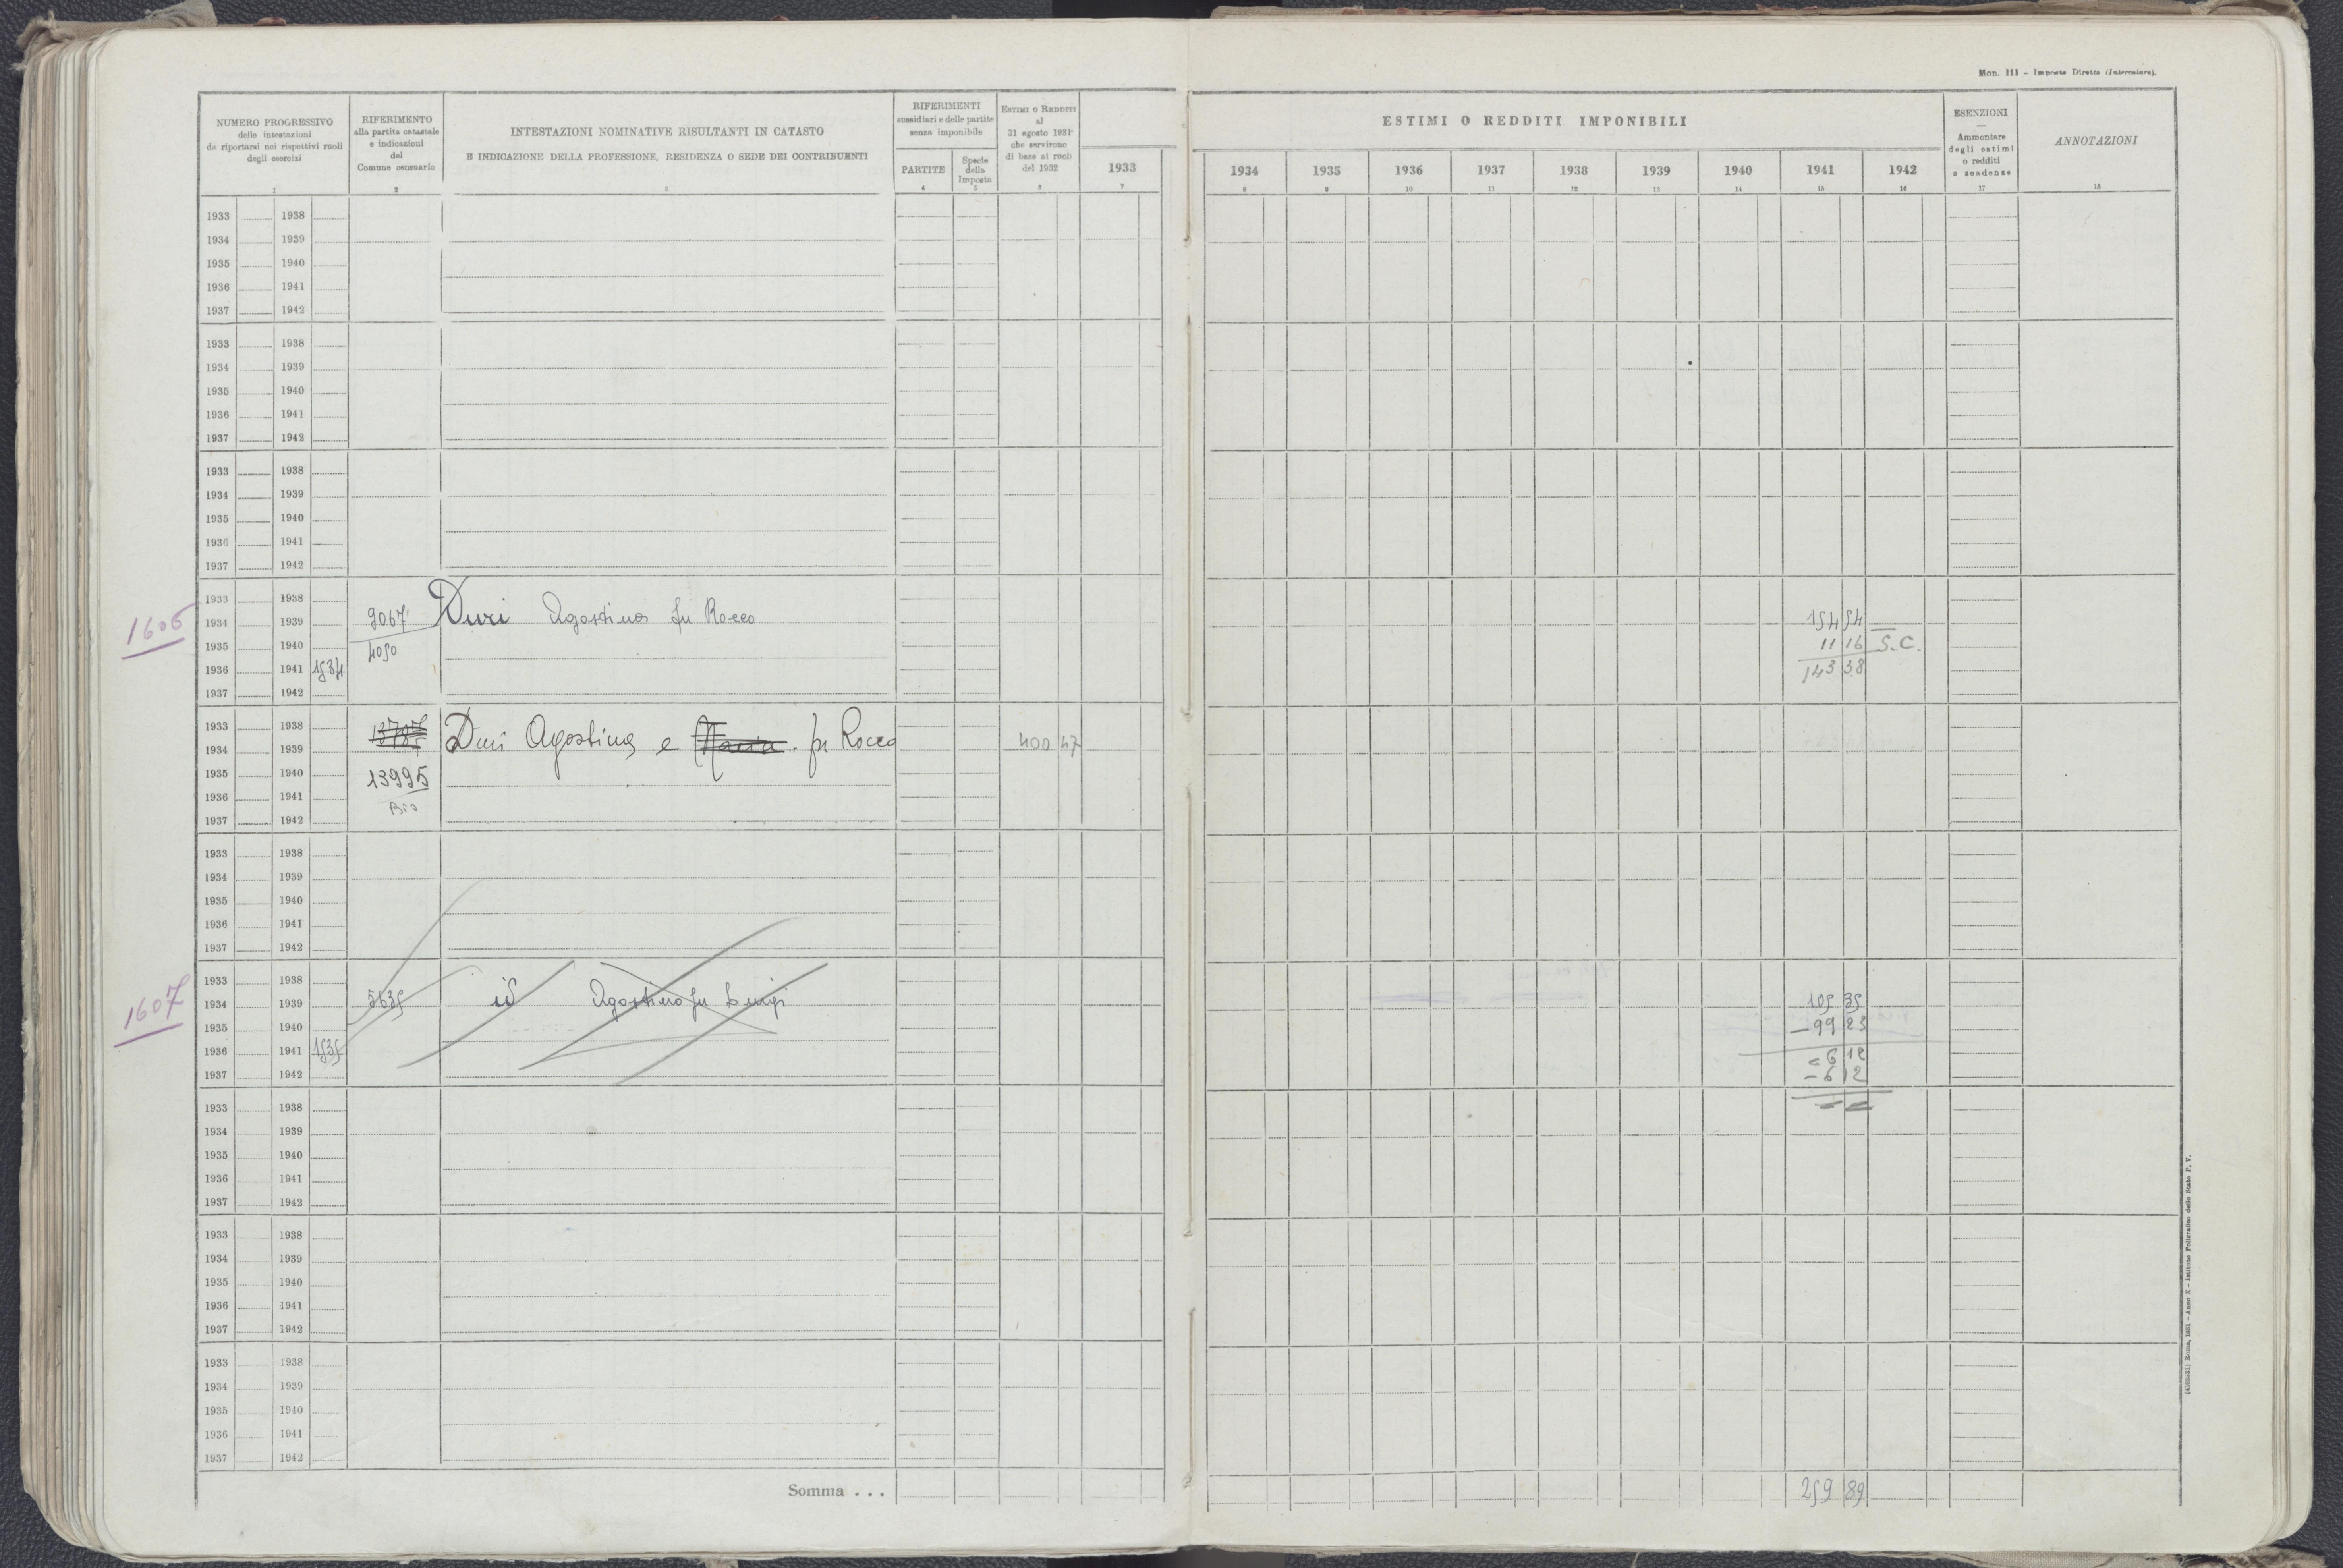 Mod. 111 - Imposte Dirette (Intercalare).
NUMERO PROGRESSIVO
delle intestazioni
da riportarsi nei rispettivi ruoli
degli esercizi
1
RIFERIMENTO
alla partita catastale
e indicazioni
del
Comune censuario
2
INTESTAZIONI NOMINATIVE RISULTANTI IN CATASTO
E INDICAZIONE DELLA PROFESSIONE, RESIDENZA O SEDE DEI CONTRIBUENTI
3
RIFERIMENTI
sussidiari e delle partite
senza imponibile
PARTITE
4
Specie
della
Imposta
5
ESTIMI O REDDITI
al
31 agosto 1931
che servirono
di base ai ruoli
del 1932
6
1933
7
ESTIMI O REDDITI IMPONIBILI
1934 1935 1936 1937 1938 1939 1940 1941 1942
8 9 10 11 12 13 14 15 16
ESENZIONI
Ammontare
degli estimi
o redditi
e scadenze
17
ANNOTAZIONI
18
1933 1938
1934 1939
1935 1940
1936 1941
1937 1942
1933 1938
1934 1939
1935 1940
1936 1941
1937 1942
1933 1938
1934 1939
1935 1940
1936 1941
1937 1942
1933 1938
1606 1934 1939 9067 Duri Agostina fu Rocco 154 54
1935 1940 4050 11 16 S.C.
1936 1941 1534 143 38
1937 1942
1933 1938
1934 1939 Duri Agostina e Maria fu Rocco 400 47
1935 1940 13995
1936 1941
1937 1942 Bis
1933 1938
1934 1939
1935 1940
1936 1941
1937 1942
1933 1938
1607 1934 1939 5635 id Agostino fu Luigi 105 35
1935 1940 - 99 23
1936 1941 1535 = 6 12
1937 1942 - 6 12
1933 1938
1934 1939
1935 1940
1936 1941
1937 1942
1933 1938
1934 1939
1935 1940
1936 1941
1937 1942
1933 1938
1934 1939
1935 1940
1936 1941
1937 1942
Somma . . . 259 89